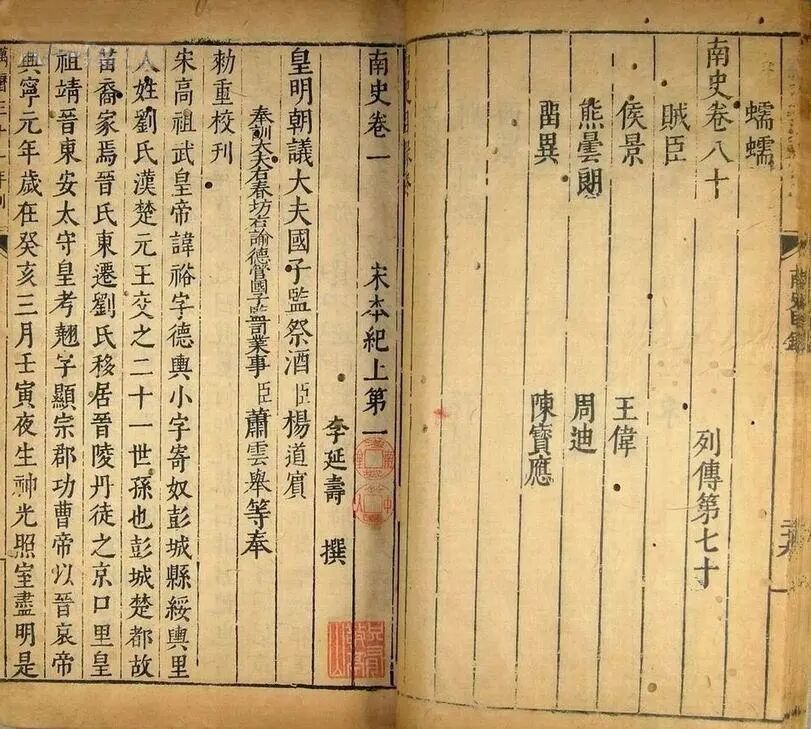 蠕蠕
南史卷八十
列傳第七十
賊臣
侯景
王偉
熊曇朗
周迪
留異
陳寶應
南史卷一
宋本紀上第一
李延壽 撰
皇明朝議大夫國子監祭酒臣楊道賓
奉訓大夫右春坊右諭德管國子監司業事臣蕭雲舉等奉
勑重校刊
宋高祖武皇帝諱裕字德輿小字寄奴彭城縣綏輿里
人姓劉氏漢楚元王交之二十一世孫也彭城楚都故
苗裔家焉晉氏東遷劉氏移居晉陵丹徒之京口里皇
祖靖晉東安太守皇考翹字顯宗郡功曹帝以晉哀帝
興寧元年歲在癸亥三月壬寅夜生神光照室盡明是